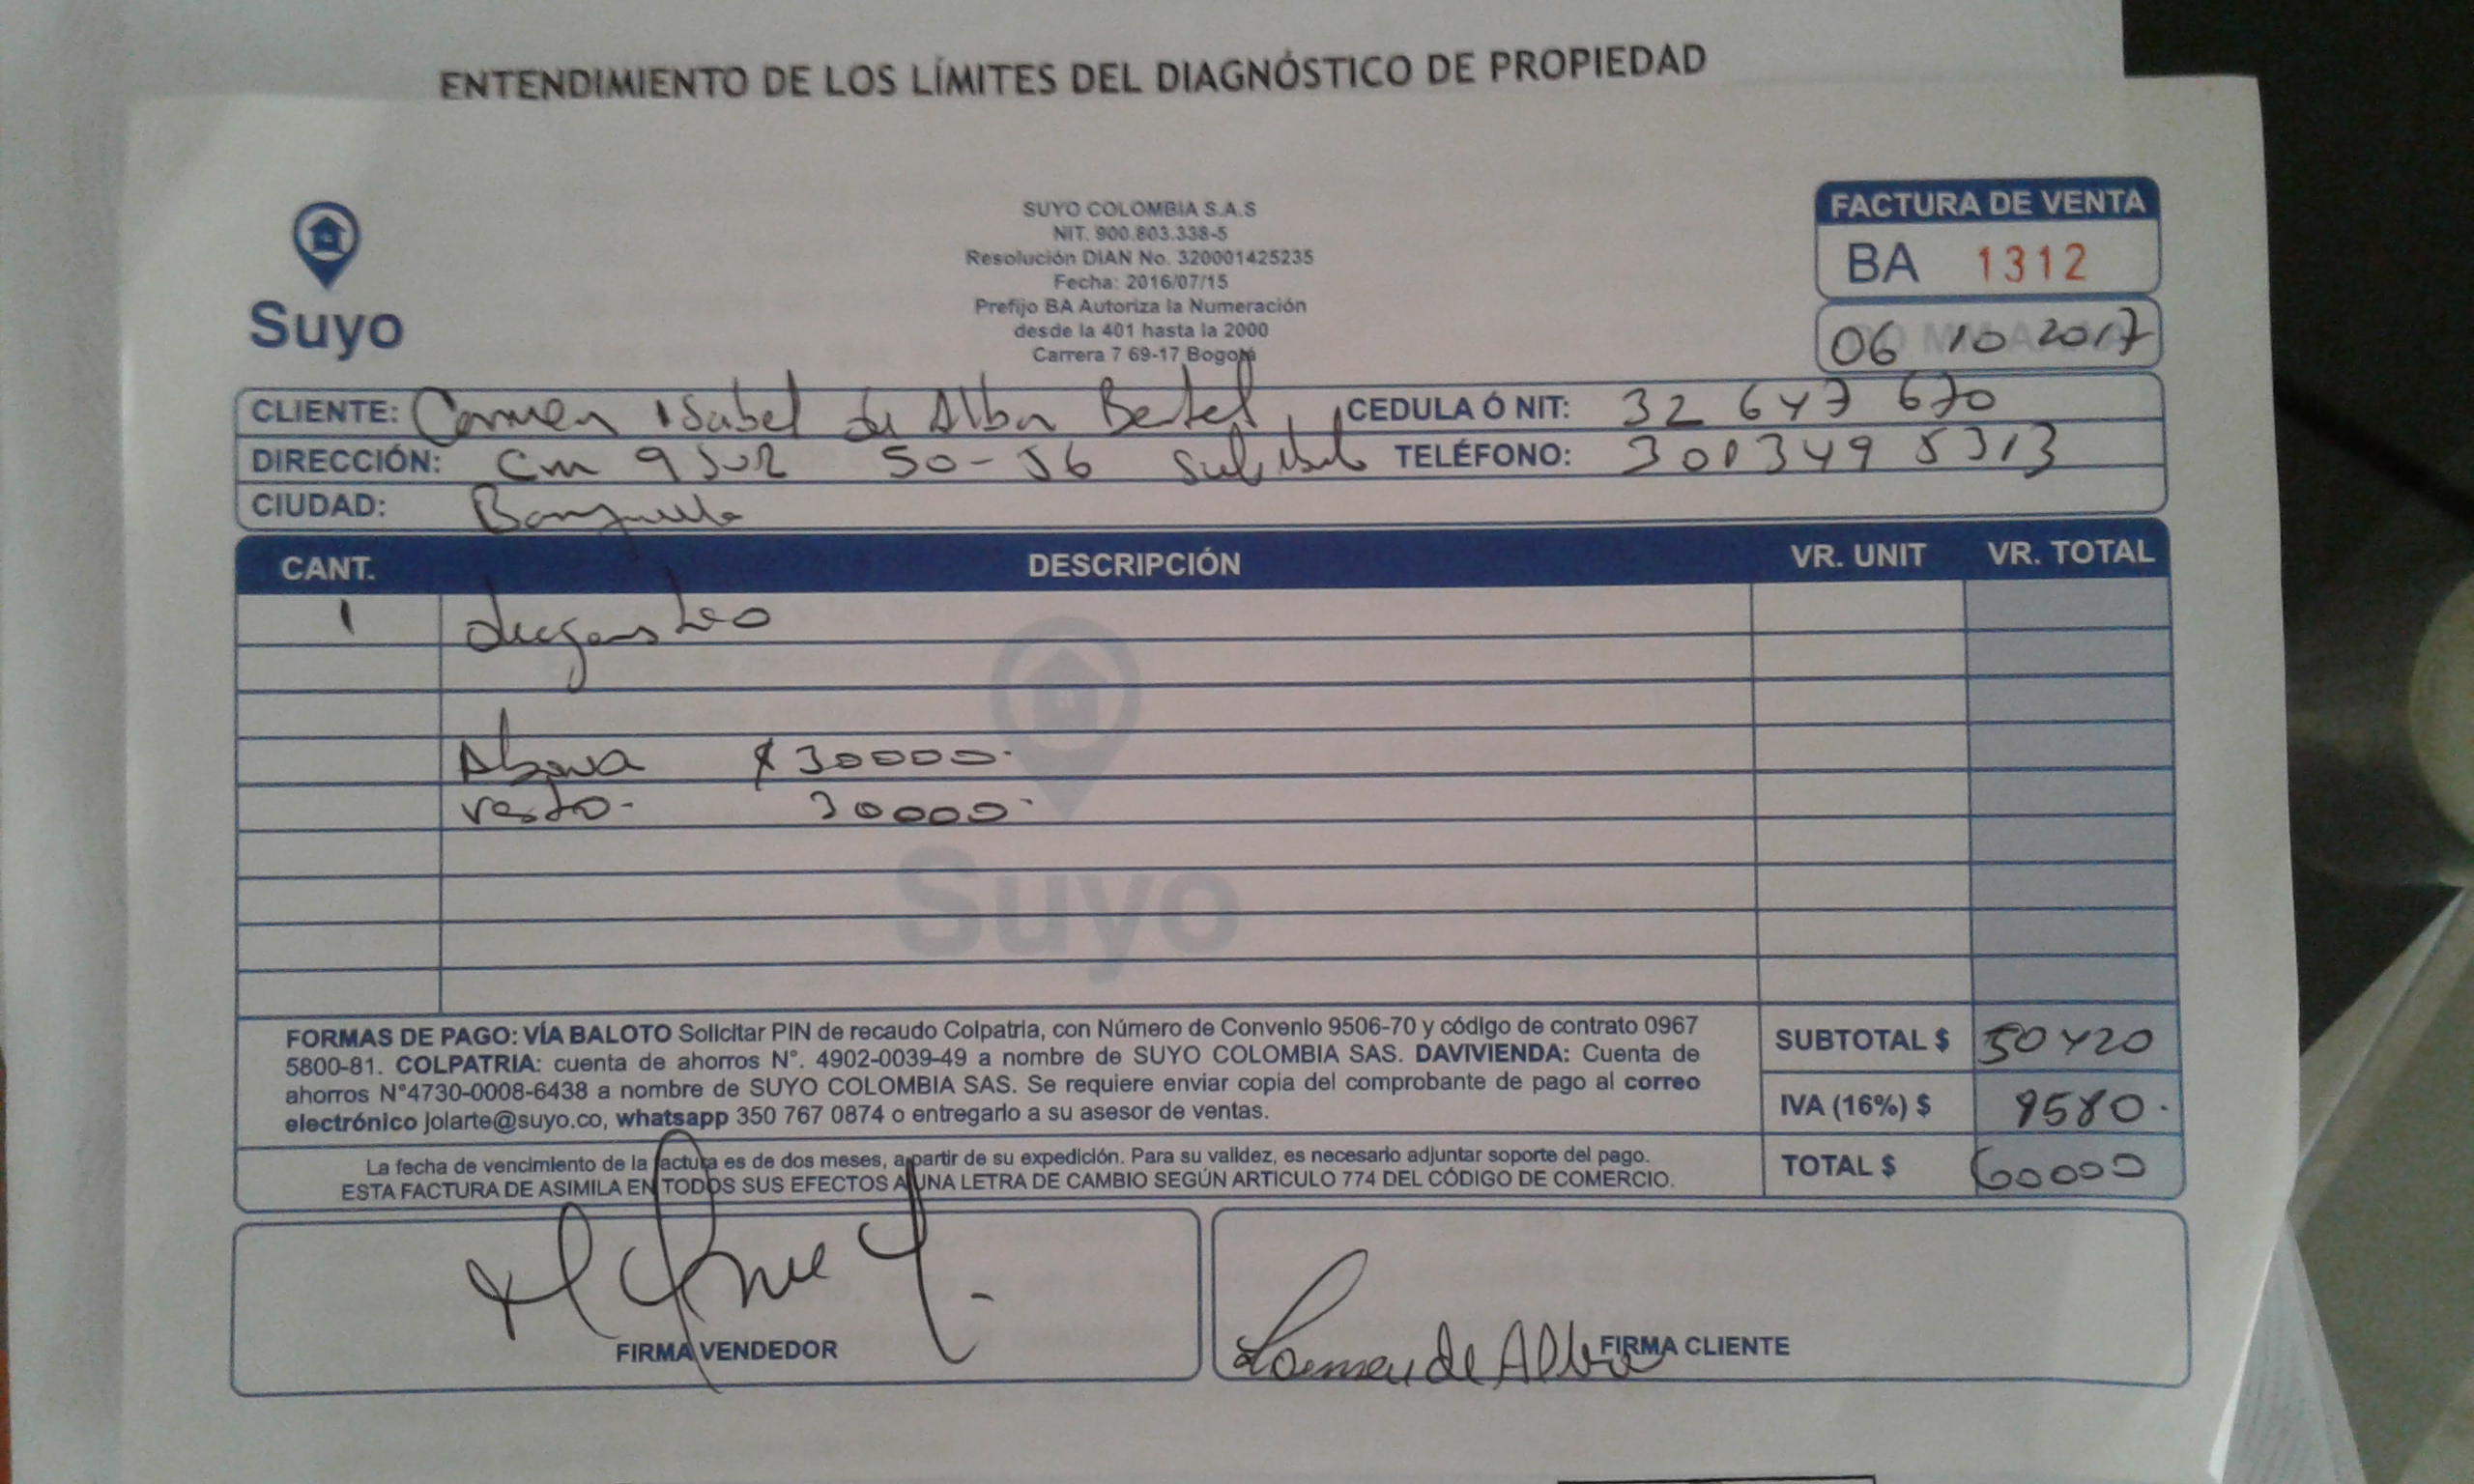 ENTENDIMIENTO DE LOS LÍMITES DEL DIAGNÓSTICO DE PROPIEDAD
Suyo
SUYO COLOMBIA S.A.S
NIT. 900.803.338-5
Resolución DIAN No. 320001425235
Fecha: 2016/07/15
Prefijo BA Autoriza la Numeración
desde la 401 hasta la 2000
Carrera 7 69-17 Bogotá
FACTURA DE VENTA
BA 1312
06 10 2017
CLIENTE: Carmen Isabel de Alba Bertel CEDULA Ó NIT: 32 647 670
DIRECCIÓN: 9 sur 50-56 TELÉFONO: 301349 5313
CIUDAD:
CANT. DESCRIPCIÓN VR. UNIT VR. TOTAL
1
Abona $ 30000
resto- 30000
Suyo
FORMAS DE PAGO: VÍA BALOTO Solicitar PIN de recaudo Colpatria, con Número de Convenio 9506-70 y código de contrato 0967
5800-81. COLPATRIA: cuenta de ahorros N°. 4902-0039-49 a nombre de SUYO COLOMBIA SAS. DAVIVIENDA: Cuenta de
ahorros N°4730-0008-6438 a nombre de SUYO COLOMBIA SAS. Se requiere enviar copia del comprobante de pago al correo
electrónico jolarte@suyo.co, whatsapp 350 767 0874 o entregarlo a su asesor de ventas.
SUBTOTAL $ 50420
IVA (16%) $ 9580
La fecha de vencimiento de la factura es de dos meses, a partir de su expedición. Para su validez, es necesario adjuntar soporte del pago.
ESTA FACTURA DE ASIMILA EN TODOS SUS EFECTOS A UNA LETRA DE CAMBIO SEGÚN ARTICULO 774 DEL CÓDIGO DE COMERCIO.
TOTAL $ 60000
FIRMA VENDEDOR
Carmen de Alba FIRMA CLIENTE